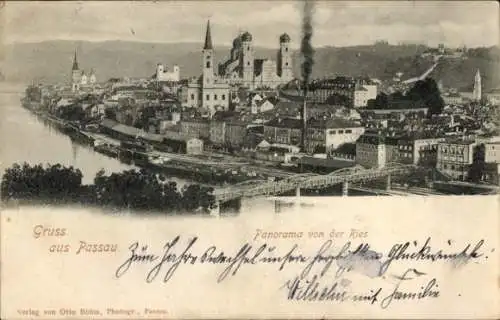 Gruss aus Passau
Panorama von der Ries
Zum Jahreswechsel unsere herzlichsten Glückwünsche
Wilhelm mit Familie
Verlag von Otto Böhm, Photogr., Passau.